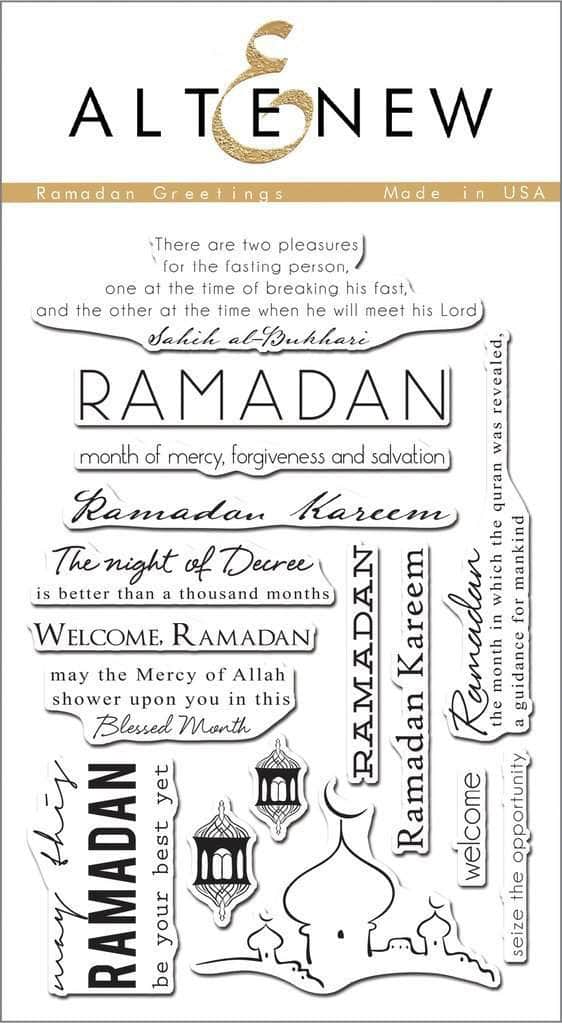 ALTENEW
Ramadan Greetings Made in USA
There are two pleasures
for the fasting person,
one at the time of breaking his fast,
and the other at the time when he will meet his Lord
Sahih al-Bukhari
RAMADAN
month of mercy, forgiveness and salvation
Ramadan Kareem
The night of Decree
is better than a thousand months
WELCOME, RAMADAN
may the Mercy of Allah
shower upon you in this
Blessed Month
RAMADAN
Ramadan Kareem
Ramadan
the month in which the quran was revealed,
a guidance for mankind
may this
RAMADAN
be your best yet
welcome
seize the opportunity